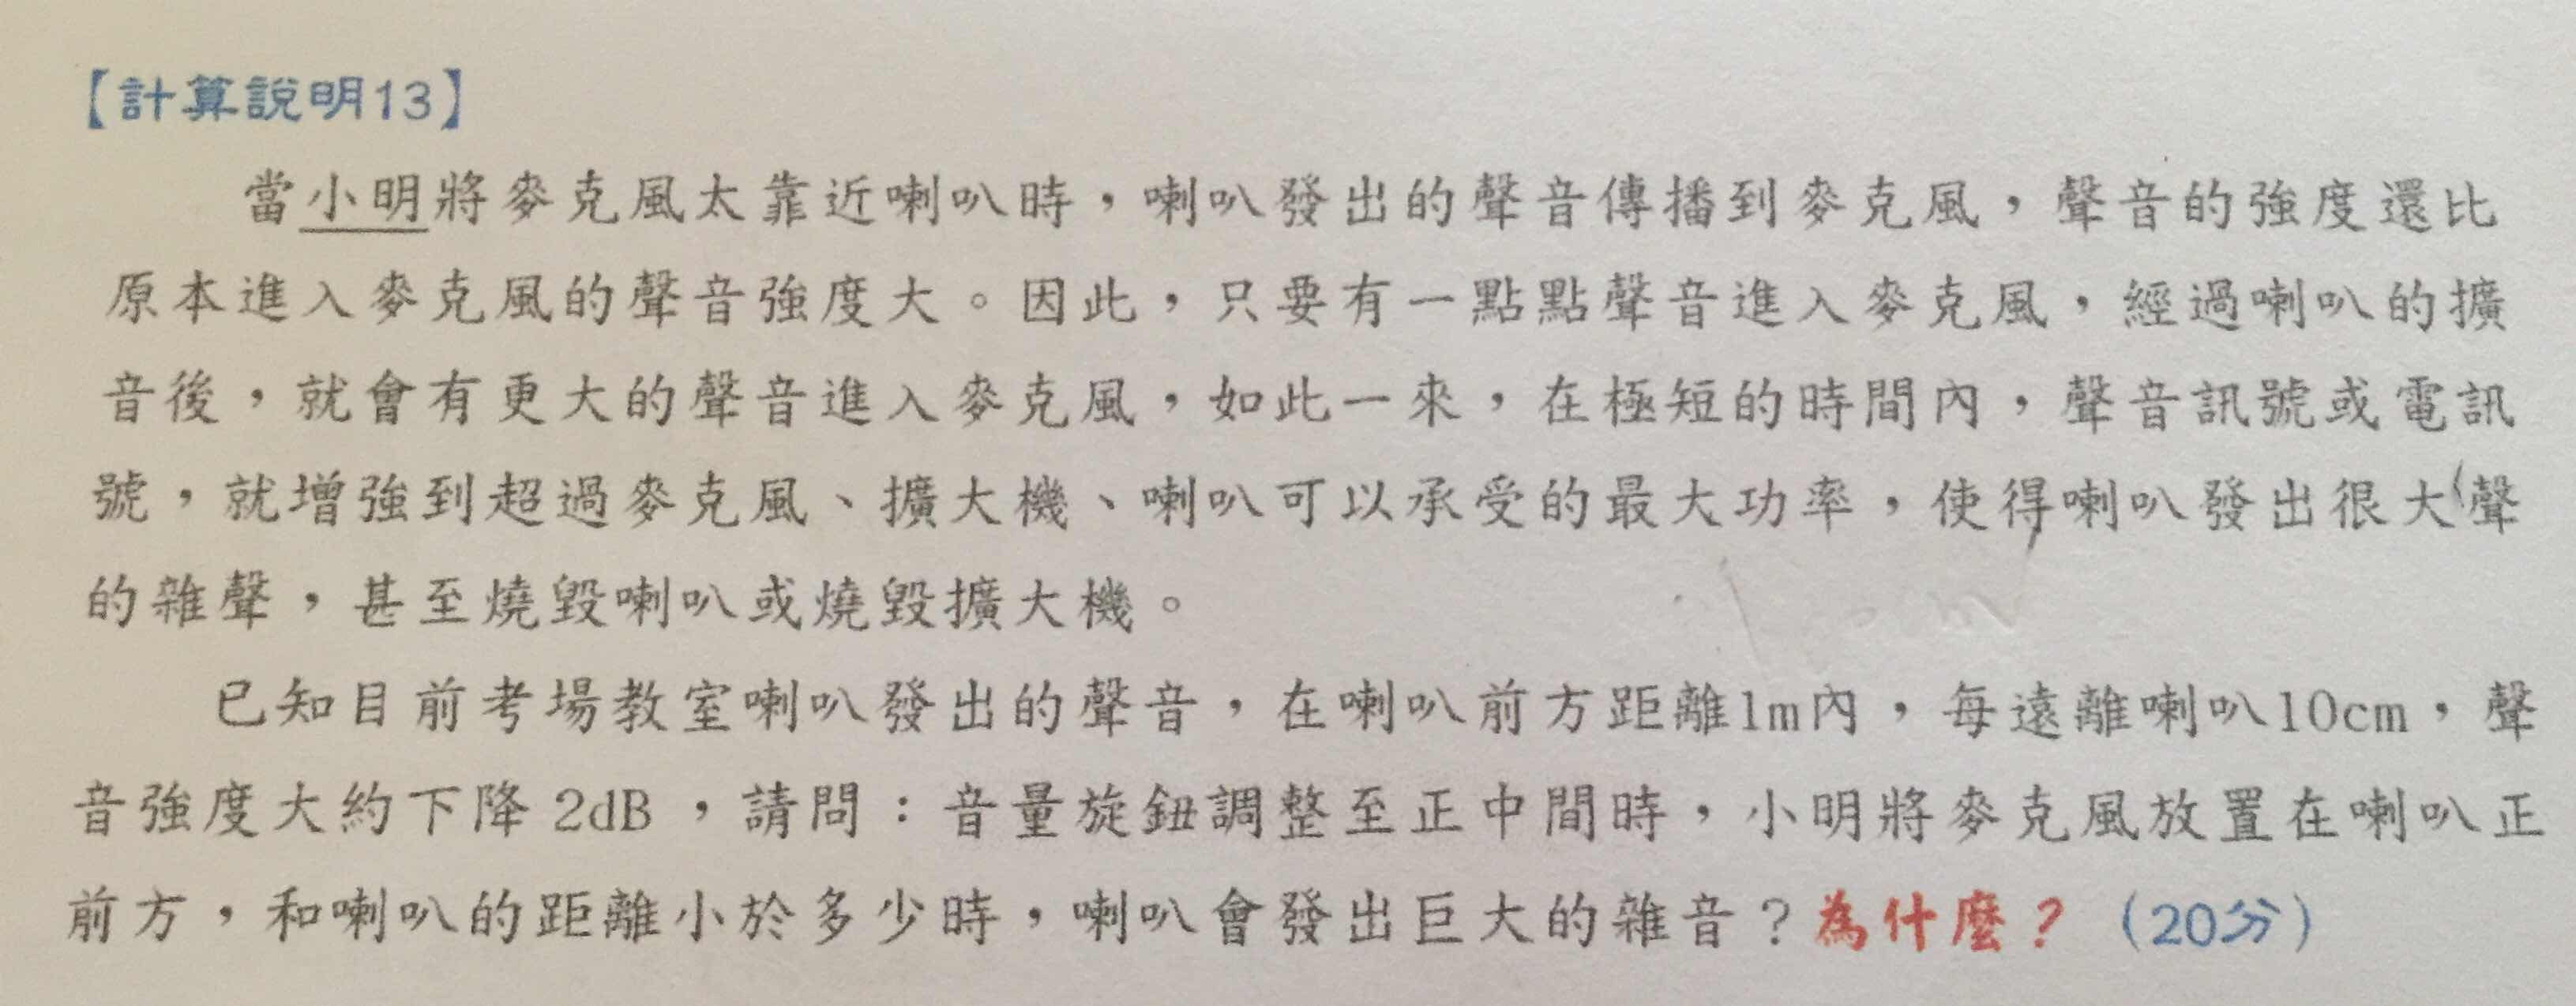 【計算說明13】
當小明將麥克風太靠近喇叭時，喇叭發出的聲音傳播到麥克風，聲音的強度還比
原本進入麥克風的聲音強度大。因此，只要有一點點聲音進入麥克風，經過喇叭的擴
音後，就會有更大的聲音進入麥克風，如此一來，在極短的時間內，聲音訊號或電訊
號，就增強到超過麥克風、擴大機、喇叭可以承受的最大功率，使得喇叭發出很大聲
的雜聲，甚至燒毀喇叭或燒毀擴大機。
已知目前考場教室喇叭發出的聲音，在喇叭前方距離1m內，每遠離喇叭10cm，聲
音強度大約下降 2dB ，請問：音量旋鈕調整至正中間時，小明將麥克風放置在喇叭正
前方，和喇叭的距離小於多少時，喇叭會發出巨大的雜音？為什麼？（20分）